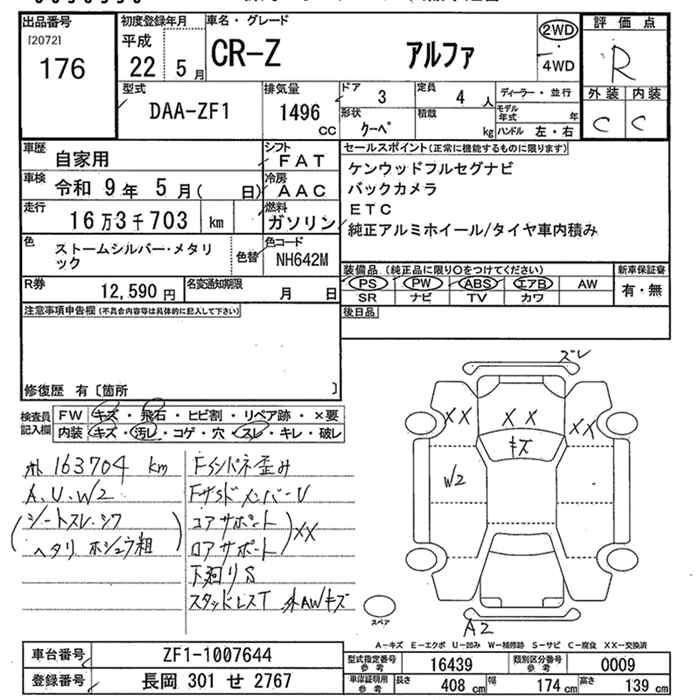 出品番号
[2072]
176
初度登録年月
平成
22 5月
車名・グレード
CR-Z アルファ
2WD
4WD
評価点
R
外装 内装
C C
型式
DAA-ZF1
排気量
1496
CC
ドア 3
定員 4 人
形状 クーペ
積載 kg
ディーラー・並行
モデル年式 年
ハンドル 左・右
車歴 自家用
シフト FAT
車検 令和 9年 5月( 日)
冷房 AAC
走行 16万3千703 km
燃料 ガソリン
色 ストームシルバー・メタリ
ック
色替
色コード NH642M
R券 12,590円
名変通知期限 月 日
セールスポイント(正常に機能するものに限ります)
ケンウッドフルセグナビ
バックカメラ
ETC
純正アルミホイール/タイヤ車内積み
装備品(純正品に限り○をつけてください)
新車保証書
PS PW ABS エアB AW
SR ナビ TV カワ
有・無
後日品
注意事項申告欄(不具合内容等は具体的に記入して下さい)
修復歴 有〔箇所 〕
検査員
記入欄
FW キズ・飛石・ヒビ割・リペア跡・×要
内装 キズ・汚レ・コゲ・穴・スレ・キレ・破レ
163704 km
A、U、W2
(シートスレ、シワ
ヘタリ ホシュウ粗)
Fインパネ歪み
FサイドメンバーU
コアサポート
ロアサポート
XX
下廻りS
スタッドレスT 外AWキズ
ズレ
XX
XX
XX
キズ
W2
スペア
A2
A-キズ E-エクボ U-凹み W-補修跡 S-サビ C-腐食 XX-交換済
車台番号 ZF1-1007644
登録番号 長岡 301 せ 2767
型式指定番号
参考
16439
類別区分番号
参考
0009
車庫証明用
参考
長さ 408 cm
幅 174 cm
高さ 139 cm